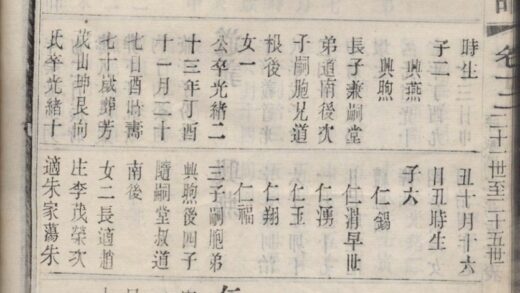 二十一世至二十五世
時生
子二
興燕
興煦
長子兼嗣堂
弟道南後次
子嗣胞兄道
根後
女一
公卒光緒二
十三年丁酉
十一月二十
七日酉時壽
七十歲葬芳
茂山坤艮向
氏卒光緒十
丑十月十六
日丑時生
子六
仁錫
仁渭早世
仁湧
仁玉
仁翔
仁福
三子嗣胞弟
興煦後四子
隨嗣堂叔道
南後
女二長適趙
庄李茂榮次
適朱家蕩朱